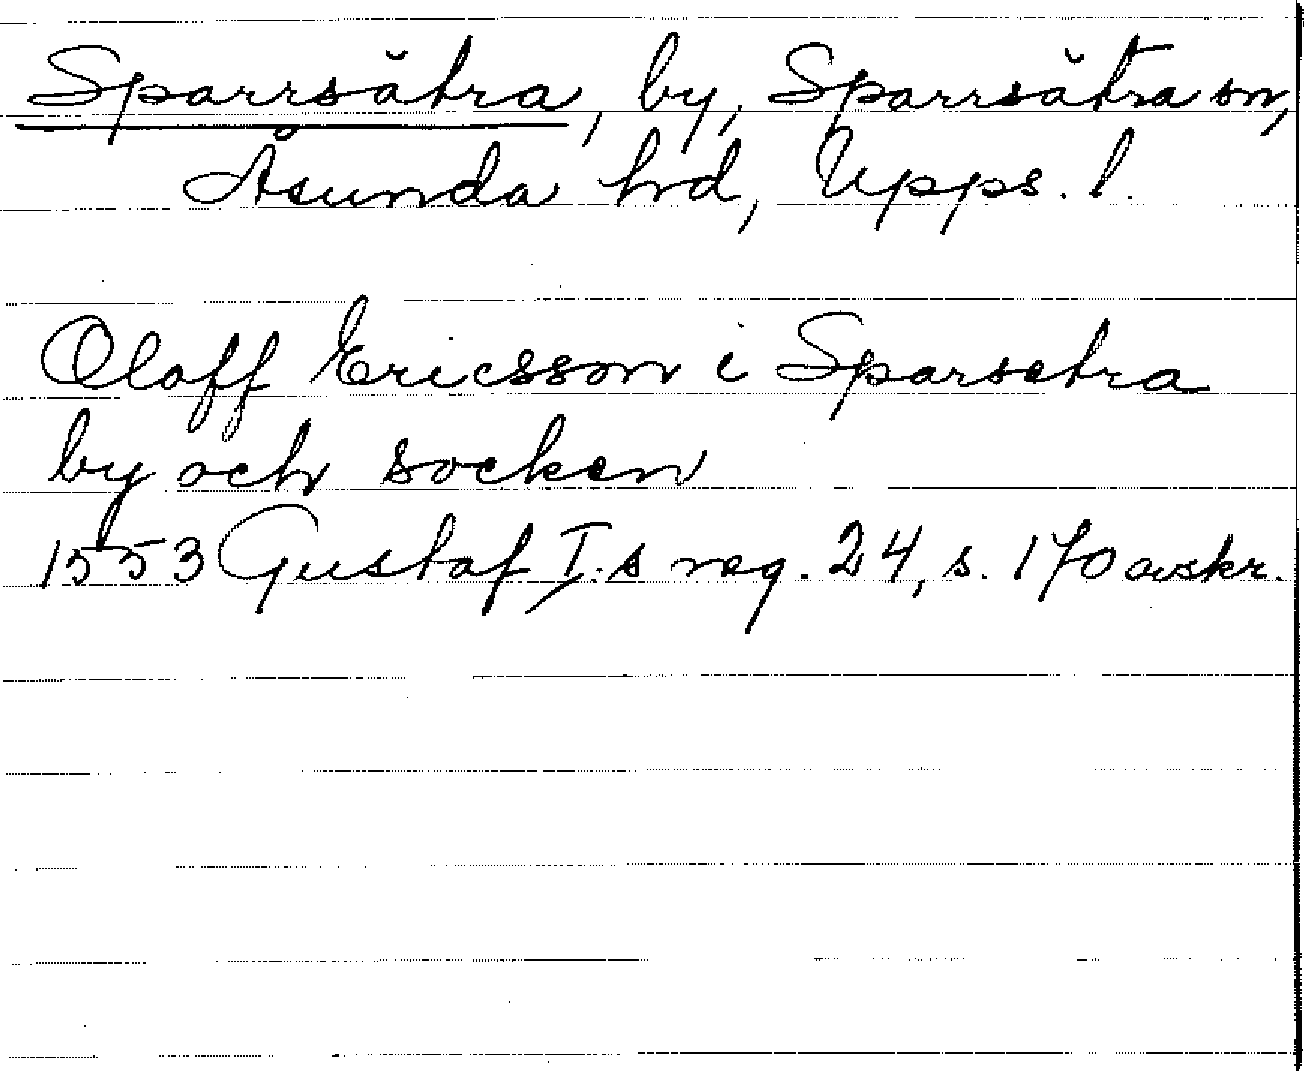 Sparrsätra, by, Sparrsätra sn,
Åsunda hd, Upps. l.
Oloff Ericsson i Sparsetra
by och socken
1553 Gustaf I:s reg. 24, s. 170 avskr.